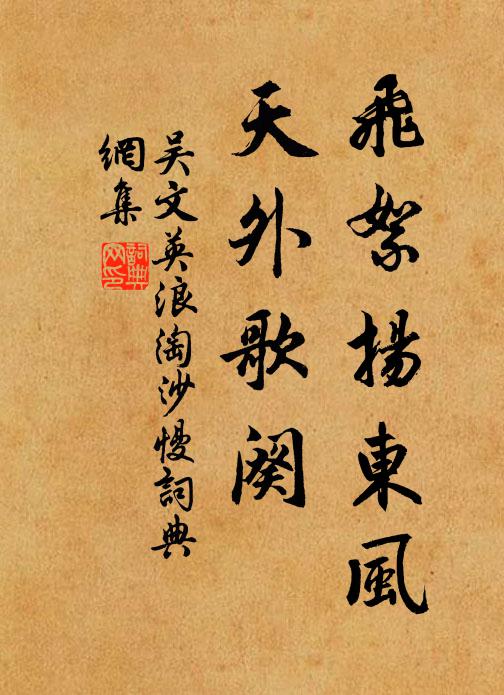 飛絮揚東風
天外歌闋
吴文英浪淘沙慢詞典
網集
詞典
网印